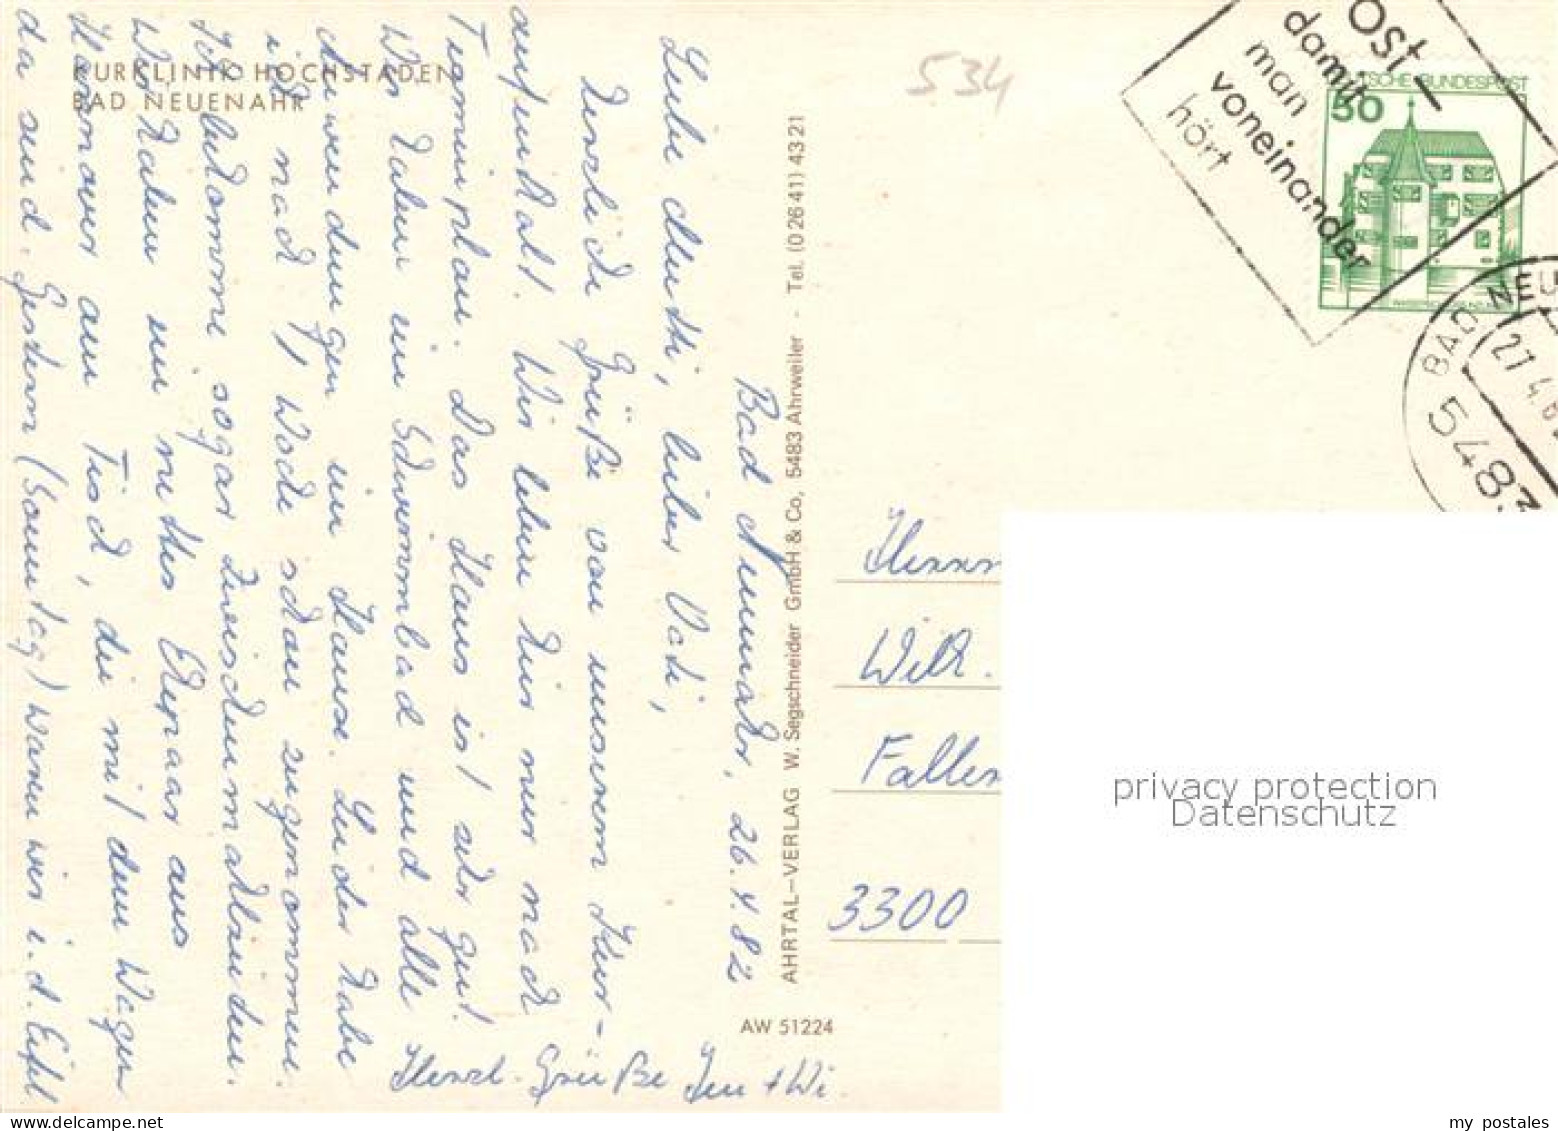 KURKLINIK HOCHSTADEN
BAD NEUENAHR
534
Post –
damit
man
voneinander
hört
DEUTSCHE BUNDESPOST
50
BAD NEU
27.4.82
5483
Bad Neuenahr, 26.4.82
Liebe Mutti, lieber Vati,
herzliche Grüße von unserem Kur-
aufenthalt. Wir leben hier nur nach
Terminplan. Das Haus ist sehr gut!
Wir haben ein Schwimmbad und alle
Anwendungen im Hause. Leider habe
ich nach 1 Woche schon zugenommen.
Ich bekomme sogar Zwischenmahlzeiten.
Wir haben ein nettes Ehepaar aus
Hannover am Tisch, die mit dem Wagen
da sind. Gestern (Sonntag) waren wir i.d. Eifel
Herzl. Grüße
AHRTAL–VERLAG W. Segschneider GmbH & Co, 5483 Ahrweiler - Tel. (0 26 41) 43 21
AW 51224
Wilh.
Faller
3300
privacy protection
Datenschutz
my postales